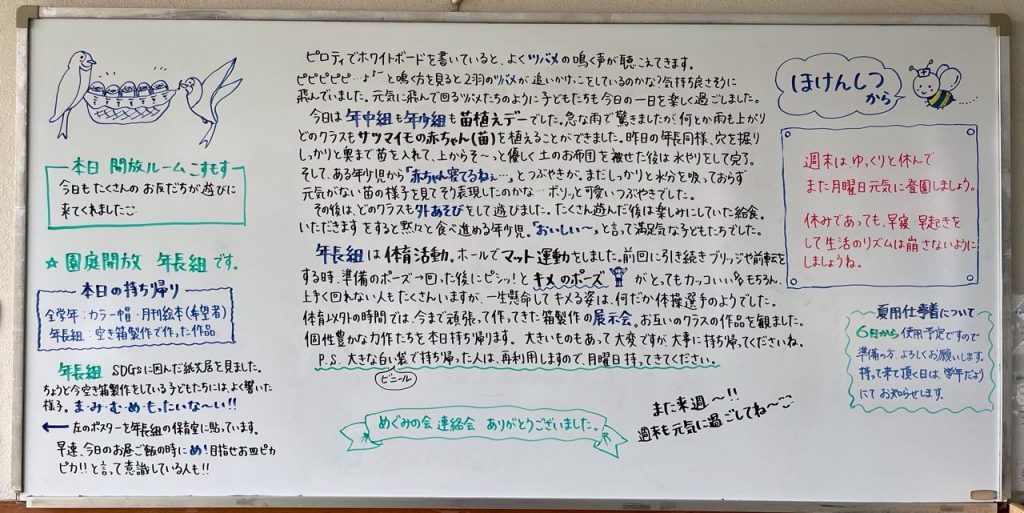 本日 開放ルームこすもす
今日もたくさんのお友だちが遊びに
来てくれました
☆ 園庭開放 年長組 です。
本日の持ち帰り
全学年:カラー帽・月刊絵本(希望者)
年長組:空き箱製作で作った作品
年長組 SDGsに因んだ紙芝居を見ました。
ちょうど今空き箱製作をしている子どもたちには、よく響いた
様子。ま・み・む・め・もったいな〜い!!
← 左のポスターを年長組の保育室に貼っています。
早速、今日のお昼ご飯の時に め!目指せお皿ピカ
ピカ!!と言って意識している人も!!
ピロティでホワイトボードを書いていると、よくツバメの鳴く声が聴こえてきます。
ピピピピピ…♪ と鳴く方を見ると2羽のツバメが追いかけっこをしているのかな?気持ち良さそうに
飛んでいました。元気に飛んで回るツバメたちのように子どもたちも今日の一日を楽しく過ごしました。
今日は年中組も年少組も苗植えデーでした。急な雨で驚きましたが、何とか雨も上がり
どのクラスもサツマイモの赤ちゃん(苗)を植えることができました。昨日の年長同様、穴を掘り
しっかりと奥まで苗を入れて、上からそ〜っと優しく土のお布団を被せた後は水やりをして完了。
そして、ある年少児から「赤ちゃん寝てるねぇ…」とつぶやきが。まだしっかりと水分を吸っておらず
元気がない苗の様子を見てそう表現したのかな…ボソッと可愛いつぶやきでした。
その後は、どのクラスも外あそびをして遊びました。たくさん遊んだ後は楽しみにしていた給食。
いただきますをすると黙々と食べ進める年少児。「おいしい〜」と言って満足気な子どもたちでした。
年長組は体育活動。ホールでマット運動をしました。前回に引き続きブリッジや前転を
する時、準備のポーズ→回った後にピシッ!とキメのポーズ がとてもカッコいい!!もちろん、
上手く回れない人もたくさんいますが、一生懸命してキメる姿は、何だか体操選手のようでした。
体育以外の時間では、今まで頑張って作ってきた箱製作の展示会。お互いのクラスの作品を観ました。
個性豊かな力作たちを本日持ち帰ります。大きいものもあって大変ですが、大事に持ち帰ってくださいね。
P.S. 大きな白い袋で持ち帰った人は、再利用しますので、月曜日持ってきてください。
ビニール
めぐみの会 連絡会 ありがとうございました。
また来週〜!!
週末も元気に過ごしてね〜
ほけんしつ
から
週末は ゆっくりと休んで
また月曜日元気に登園しましょう。
休みであっても、早寝 早起きを
して生活のリズムは崩さないように
しましょうね。
夏用仕事着について
6月から使用予定ですので
準備の方、よろしくお願いします。
持って来て頂く日は、学年だより
にてお知らせします。